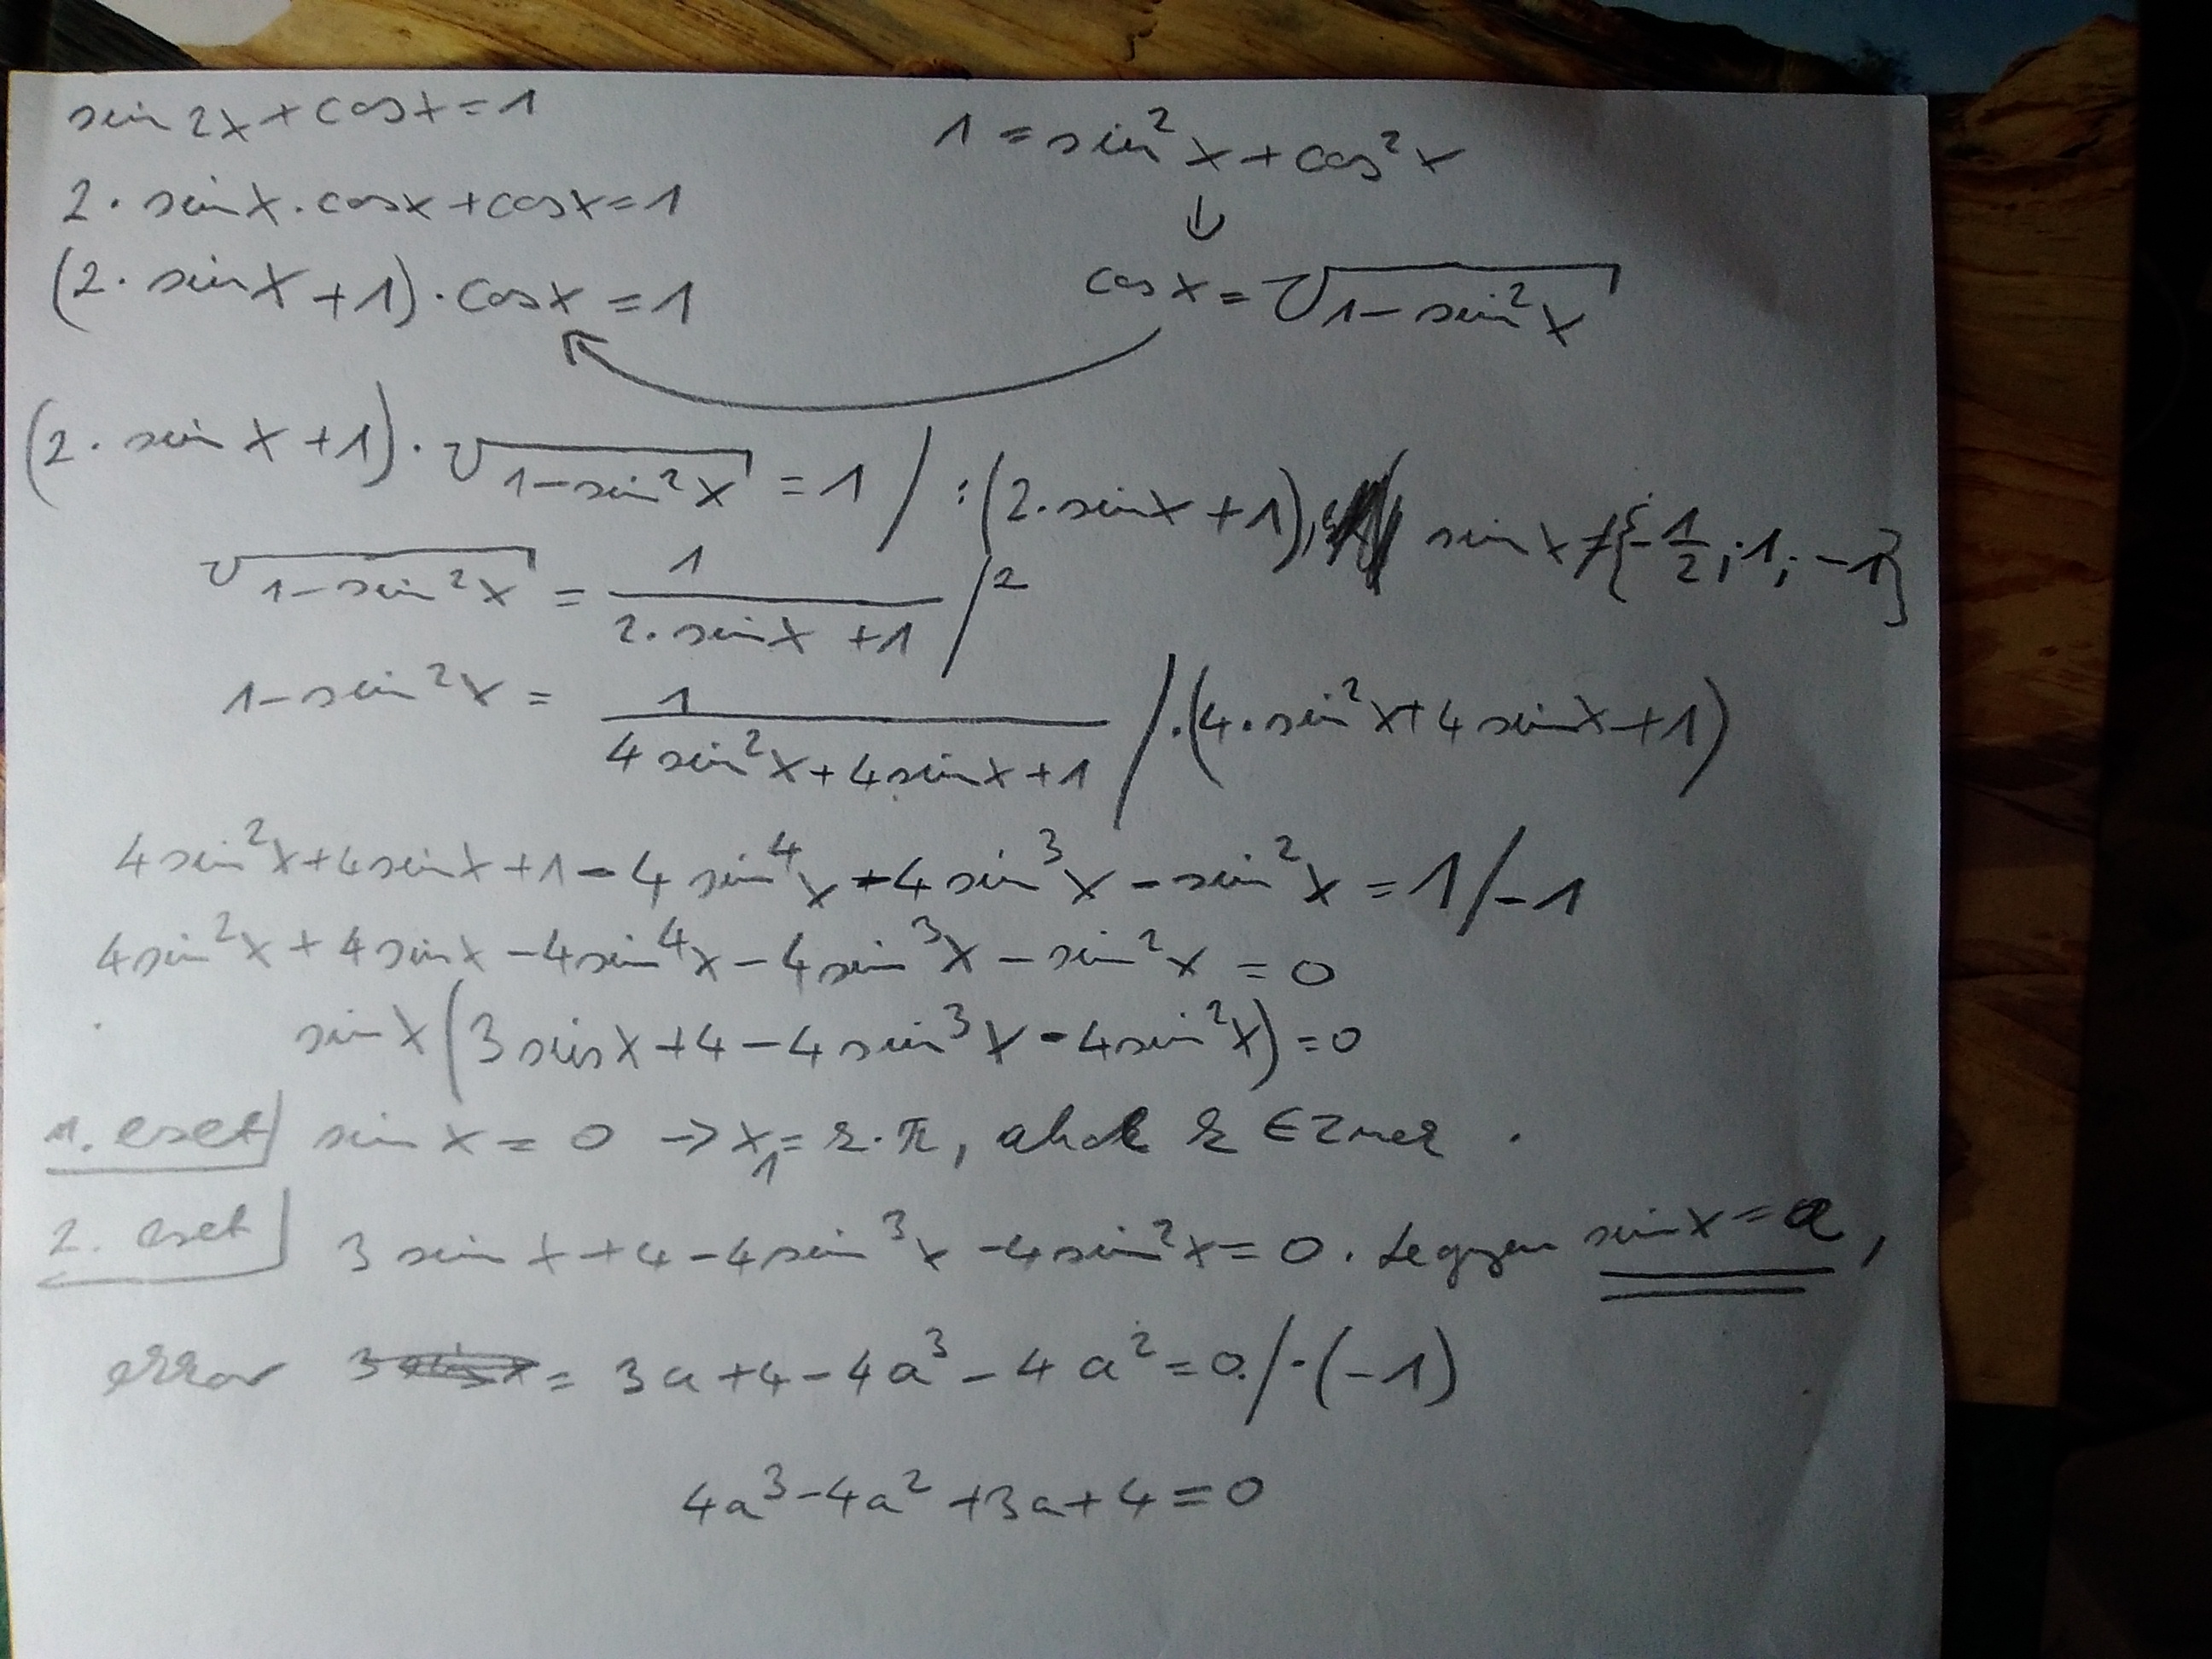 sin2x+cosx=1
2·sinx·cosx+cosx=1
(2·sinx+1)·cosx=1
1=sin²x+cos²x
↓
cosx=√(1-sin²x)
(2·sinx+1)·√(1-sin²x)=1 /:(2·sinx+1), sinx≠{-1/2; 1; -1}
√(1-sin²x)=1/(2·sinx+1) /²
1-sin²x=1/(4sin²x+4sinx+1) /·(4·sin²x+4sinx+1)
4sin²x+4sinx+1-4sin⁴x-4sin³x-sin²x=1/-1
4sin²x+4sinx-4sin⁴x-4sin³x-sin²x=0
sinx(3sinx+4-4sin³x-4sin²x)=0
1. eset sinx=0 →x₁=k·π, ahol k ∈
2. eset 3sinx+4-4sin³x-4sin²x=0. Legyen sinx=a,
ekkor 3 = 3a+4-4a³-4a²=0./·(-1)
4a³-4a²+3a+4=0